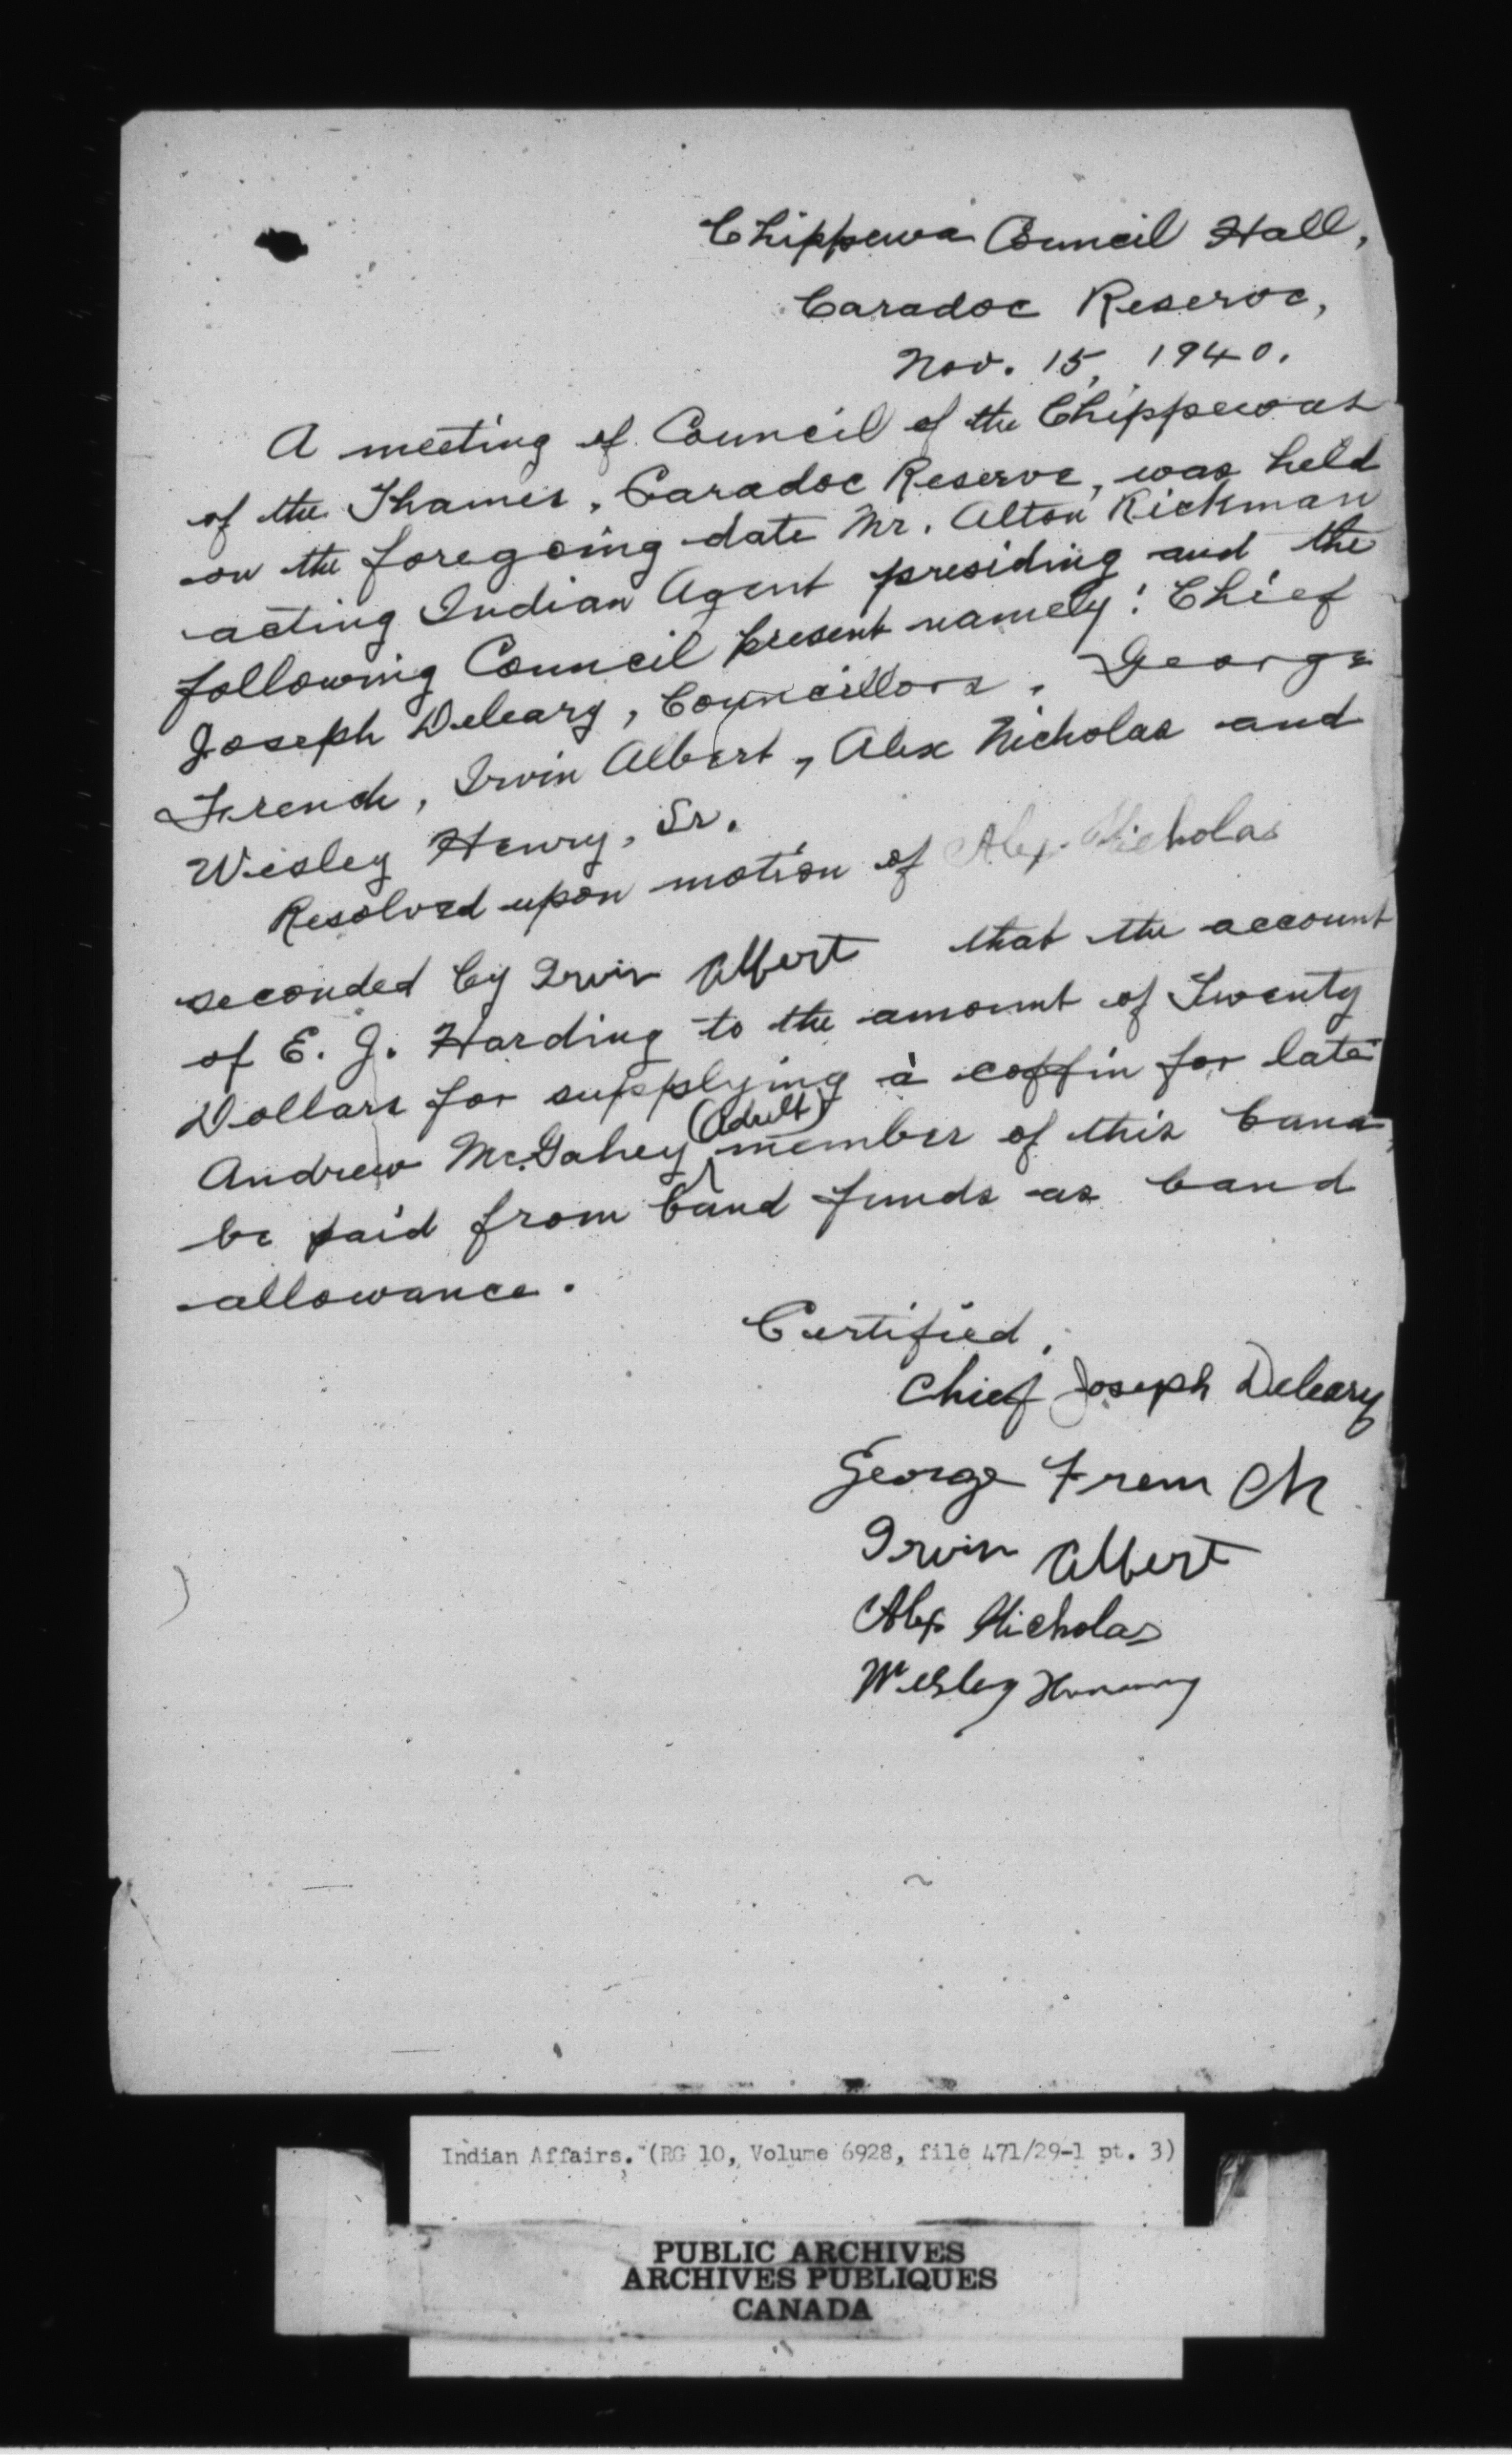 Chippewa Council Hall,
Caradoc Reserve,
Nov. 15, 1940.
A meeting of Council of the Chippewas
of the Thames, Caradoc Reserve, was held
on the foregoing date Mr. Alton Rickman
acting Indian Agent presiding and the
following Council present namely: Chief
Joseph Deleary, Councillors, George
French, Irvin Albert, Alex Nicholas and
Wesley Henry, Sr.
Resolved upon motion of Alex Nicholas
seconded by Irvin Albert that the account
of E. J. Harding to the amount of Twenty
Dollars for supplying a coffin for late
(Adult)
Andrew McGahey member of this band,
be paid from band funds as band
allowance.
Certified,
Chief Joseph Deleary
George French
Irvin Albert
Alex Nicholas
Wesley
Indian Affairs. (RG 10, Volume 6928, file 471/29-1 pt. 3)
PUBLIC ARCHIVES
ARCHIVES PUBLIQUES
CANADA